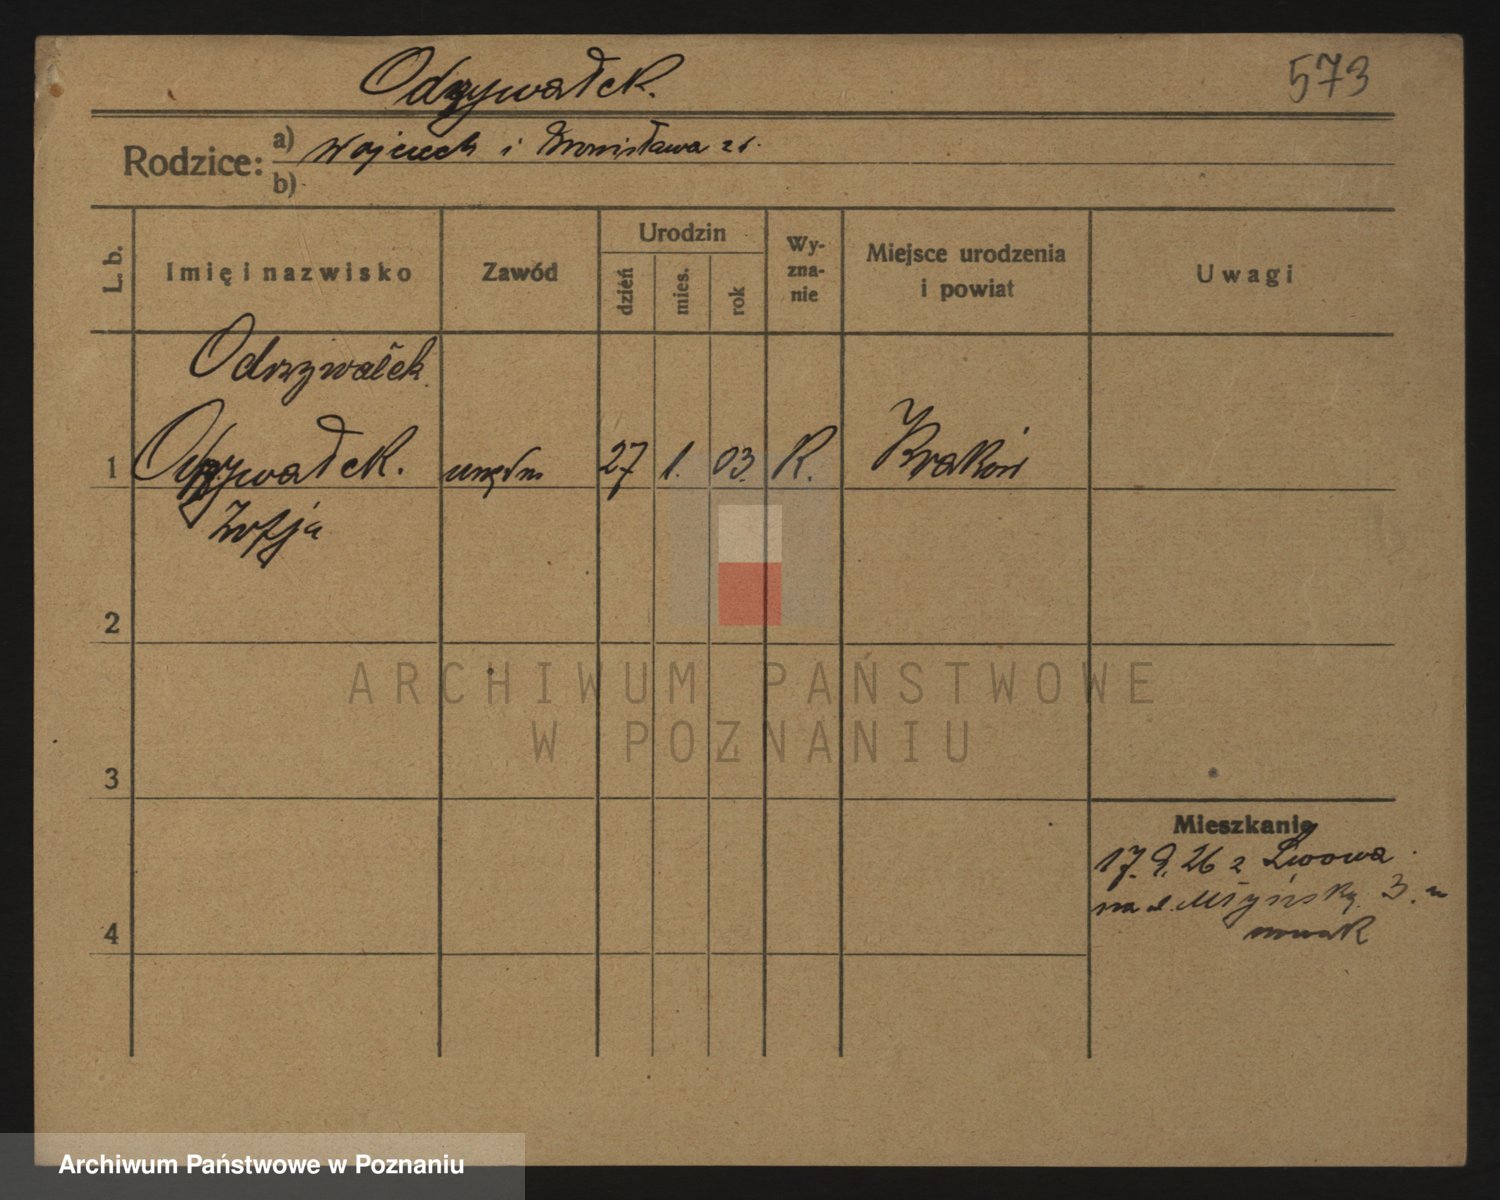 573
Odrzywałek.
Rodzice: a) Wojciech i Bronisława
b)
L. b. Imię i nazwisko Zawód Urodzin dzień mies. rok Wy-zna-nie Miejsce urodzenia i powiat Uwagi
Odrzywałek.
1 Odrzywałek. urzędn 27 1. 03. R. Kraków
Zofja
2
3
4
Mieszkanie
17. 9. 26 z Lwowa
na ul. Młyńską 3. u
nowak
ARCHIWUM PAŃSTWOWE
W POZNANIU
Archiwum Państwowe w Poznaniu